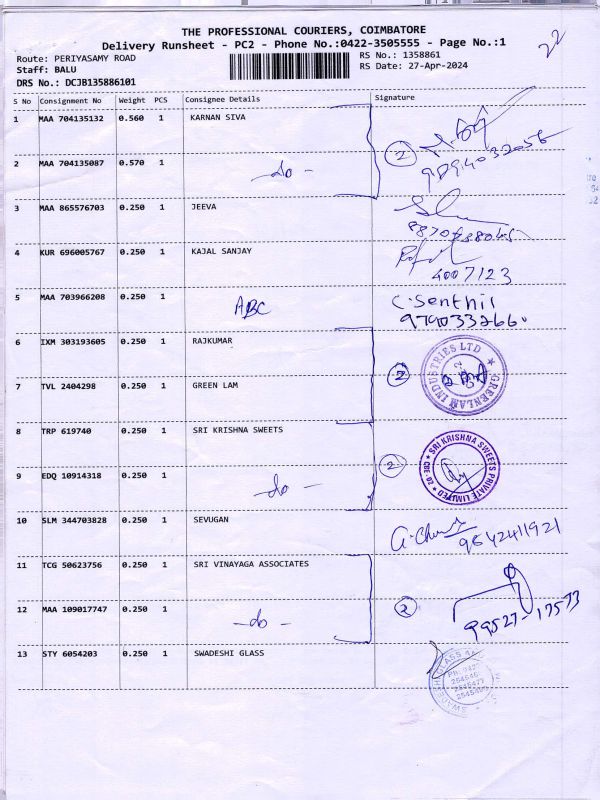 THE PROFESSIONAL COURIERS, COIMBATORE
Delivery Runsheet - PC2 - Phone No.:0422-3505555 - Page No.:1
22
Route: PERIYASAMY ROAD
RS No.: 1358861
Staff: BALU
RS Date: 27-Apr-2024
DRS No.: DCJB135886101
S No Consignment No Weight PCS Consignee Details Signature
1 MAA 704135132 0.560 1 KARNAN SIVA
2
2 MAA 704135087 0.570 1 -do-
3 MAA 865576703 0.250 1 JEEVA
4 KUR 696005767 0.250 1 KAJAL SANJAY
4007123
5 MAA 703966208 0.250 1 ABC C. Senthil
6 IXM 303193605 0.250 1 RAJKUMAR
2
GREENLAM INDUSTRIES LTD
7 TVL 2404298 0.250 1 GREEN LAM
8 TRP 619740 0.250 1 SRI KRISHNA SWEETS
2
SRI KRISHNA SWEETS PRIVATE LIMITED
9 EDQ 10914318 0.250 1 -do-
10 SLM 344703828 0.250 1 SEVUGAN
9842411921
11 TCG 50623756 0.250 1 SRI VINAYAGA ASSOCIATES
2
12 MAA 109017747 0.250 1 -do-
99527-17573
13 STY 6054203 0.250 1 SWADESHI GLASS
SWADESHI GLASS